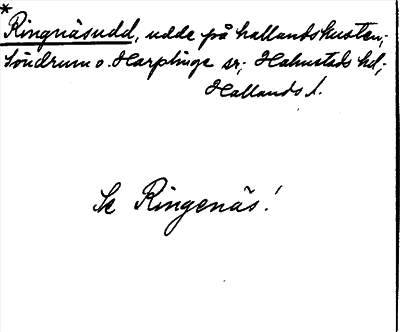 *
Ringnäsudd, udde på hallandskusten;
Söndrum o. Harplinge sr; Halmstads hd;
Hallands l.
Se Ringenäs!